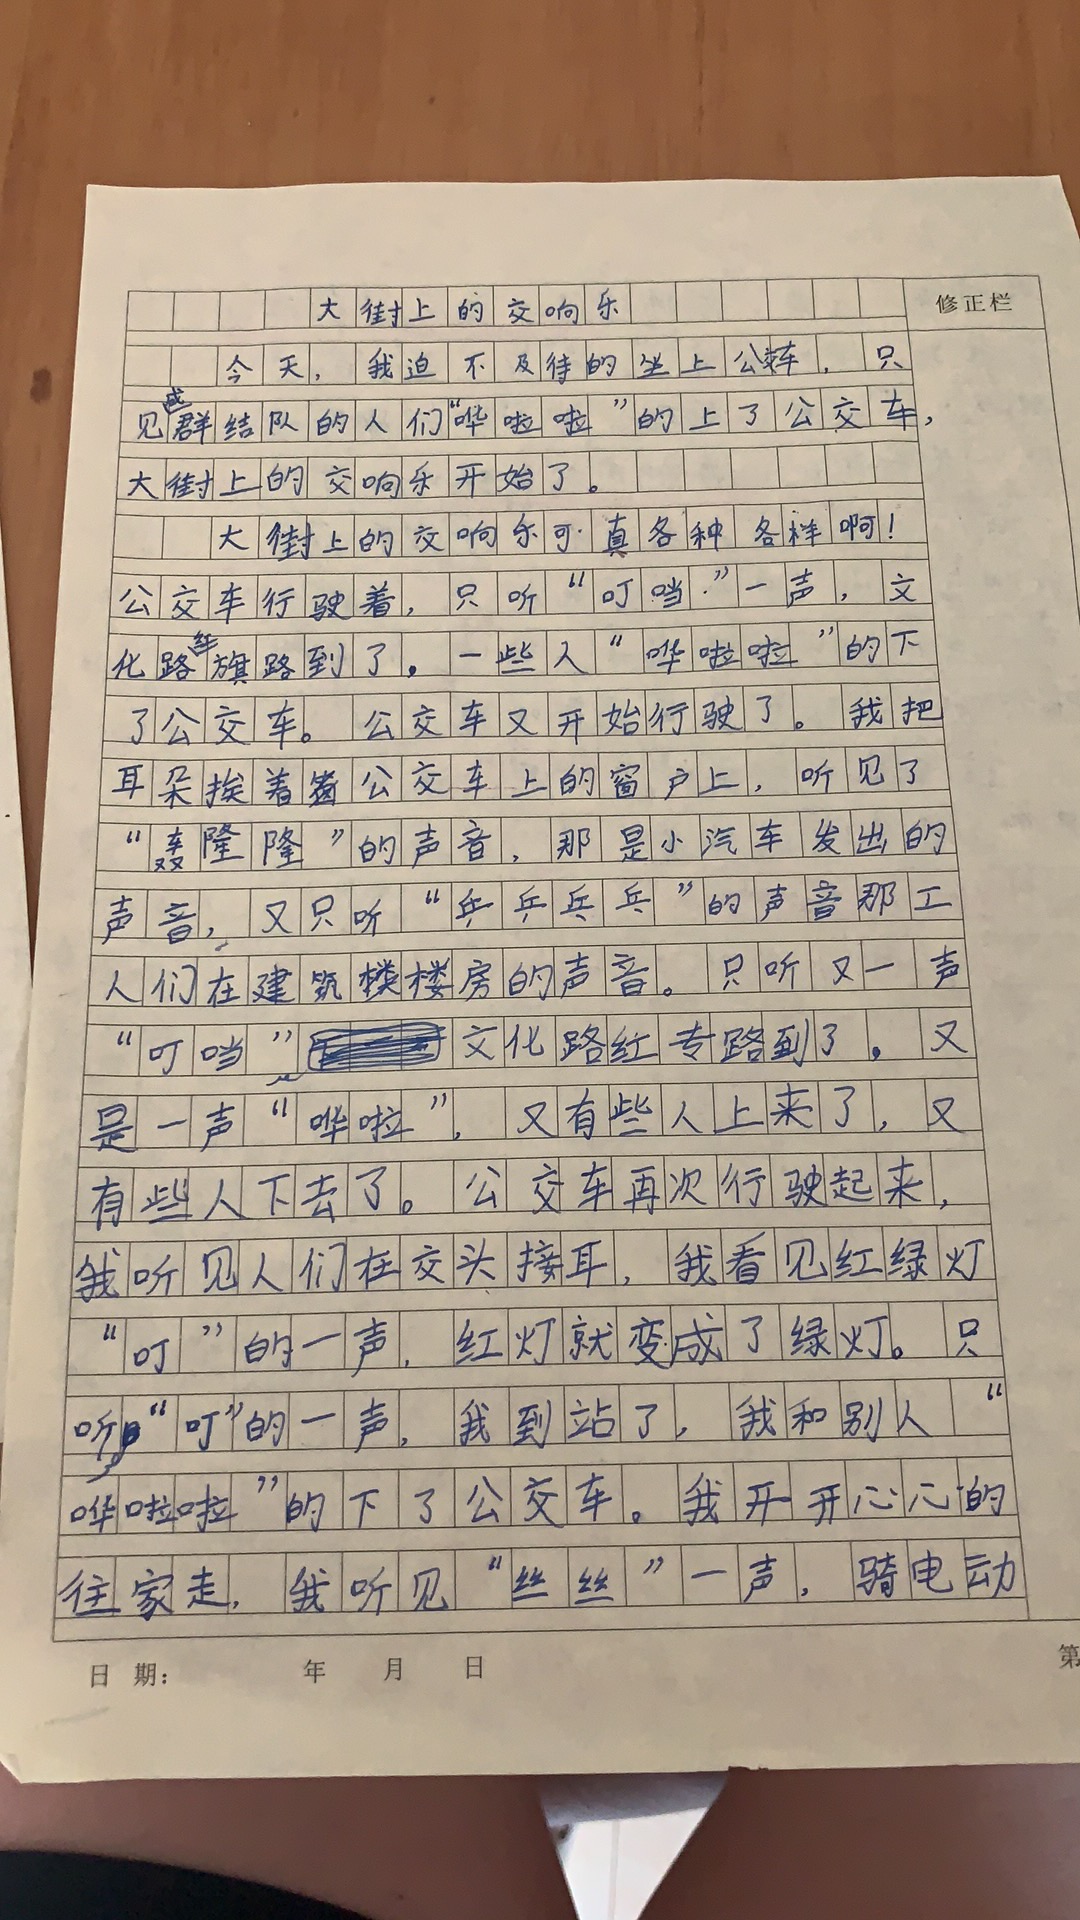 大街上的交响乐
修正栏
今天，我迫不及待的坐上公交车，只
见成群结队的人们“哗啦啦”的上了公交车，
大街上的交响乐开始了。
大街上的交响乐可真各种各样啊！
公交车行驶着，只听“叮当”一声，文
化路红旗路到了。一些人“哗啦啦”的下
了公交车。公交车又开始行驶了。我把
耳朵挨着公交车上的窗户上，听见了
“轰隆隆”的声音，那是小汽车发出的
声音，又只听“乒乒乓乓”的声音那工
人们在建筑楼房的声音。只听又一声
“叮当”文化路红专路到了。又
是一声“哗啦”，又有些人上来了，又
有些人下去了。公交车再次行驶起来，
我听见人们在交头接耳，我看见红绿灯
“叮”的一声，红灯就变成了绿灯。只
听“叮”的一声，我到站了，我和别人“
哗啦啦”的下了公交车。我开开心心的
往家走，我听见“丝丝”一声，骑电动
日期： 年 月 日
第